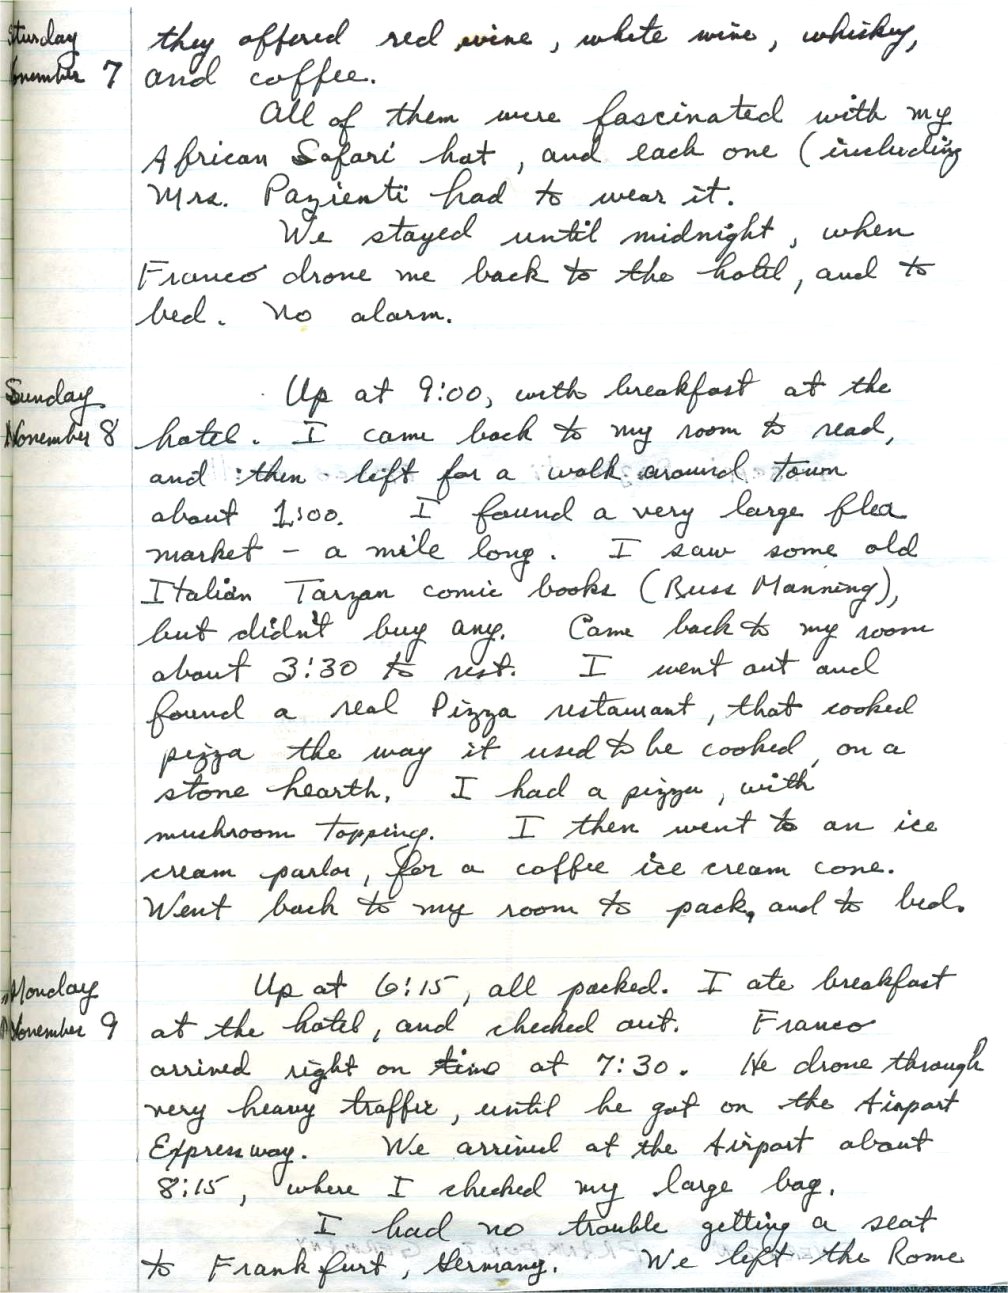 Saturday they offered red wine, white wine, whiskey,
November 7 and coffee.
All of them were fascinated with my
African Safari hat, and each one (including
Mrs. Pazienti had to wear it.
We stayed until midnight, when
Franco drove me back to the hotel, and to
bed. No alarm.
Sunday Up at 9:00, with breakfast at the
November 8 hotel. I came back to my room to read,
and then left for a walk around town
about 1:00. I found a very large flea
market - a mile long. I saw some old
Italian Tarzan comic books (Russ Manning),
but didn't buy any. Came back to my room
about 3:30 to rest. I went out and
found a real Pizza restaurant, that cooked
pizza the way it used to be cooked, on a
stone hearth. I had a pizza, with
mushroom topping. I then went to an ice
cream parlor, for a coffee ice cream cone.
Went back to my room to pack, and to bed.
Monday Up at 6:15, all packed. I ate breakfast
November 9 at the hotel, and checked out. Franco
arrived right on time at 7:30. He drove through
very heavy traffic, until he got on the Airport
Expressway. We arrived at the Airport about
8:15, where I checked my large bag.
I had no trouble getting a seat
to Frankfurt, Germany. We left the Rome